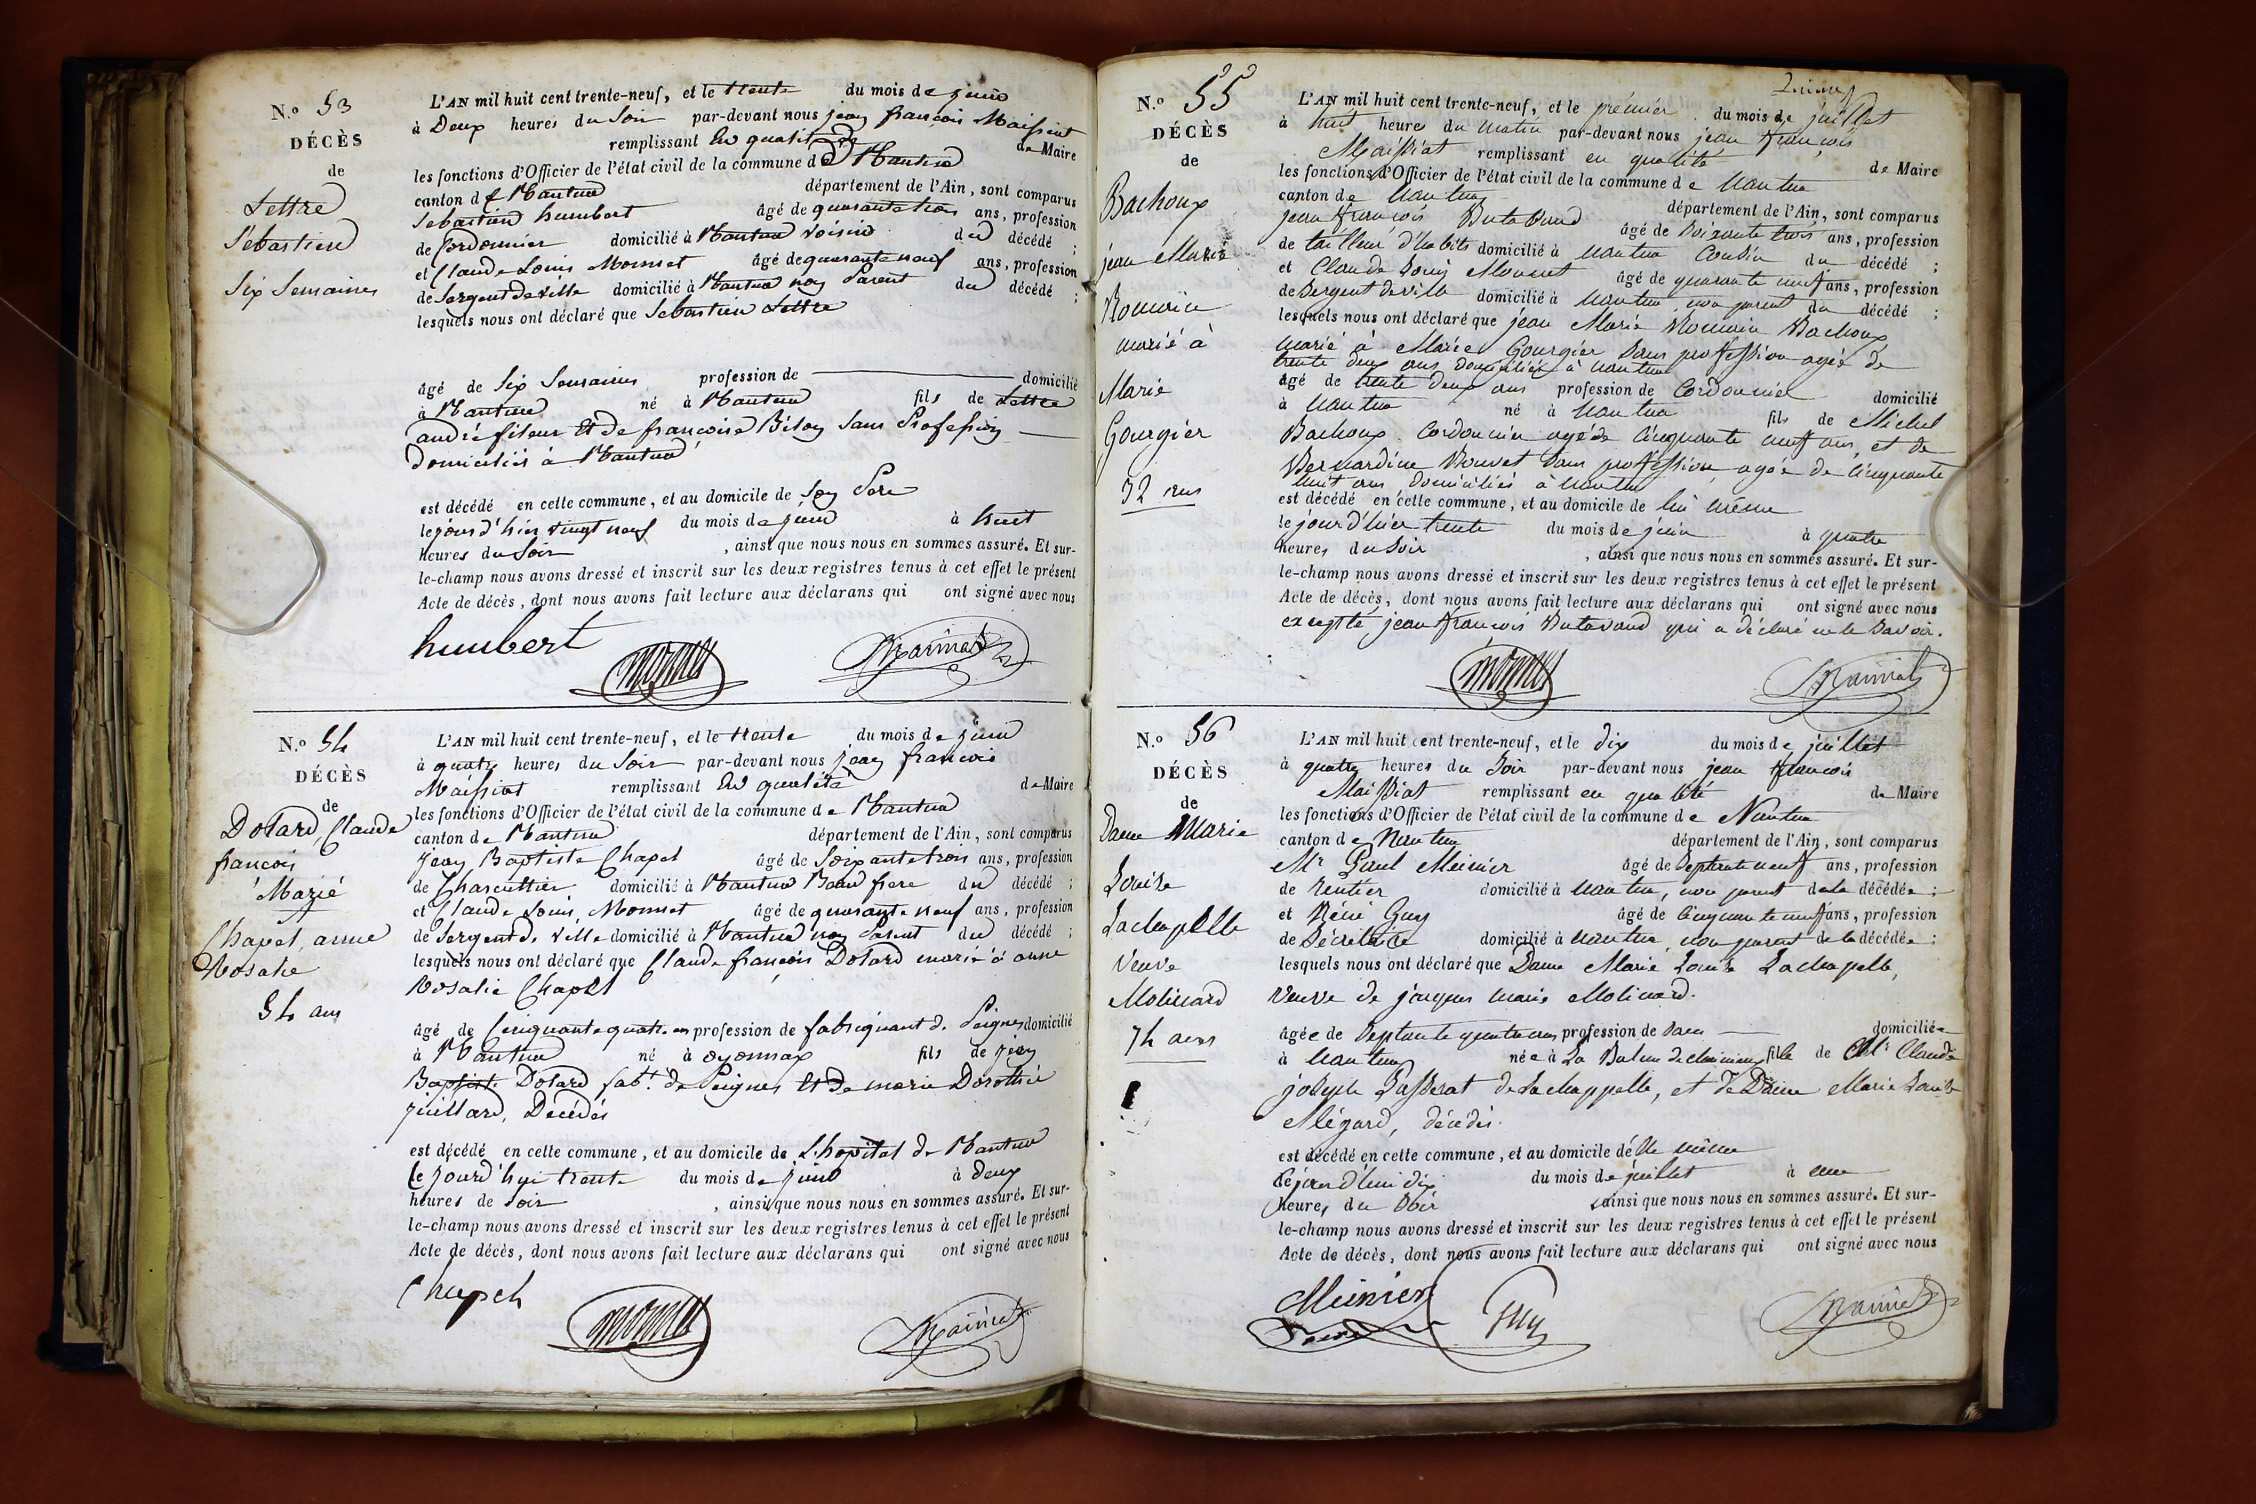 N.º 53
DÉCÈS
de
Lettre
Sébastien
Six Semaines
L'AN mil huit cent trente-neuf, et le trente du mois de juin
à Deux heures du Soir par-devant nous jean françois Maissiat
remplissant en qualité de Maire
les fonctions d'Officier de l'état civil de la commune de Nantua
canton de Nantua département de l'Ain, sont comparus
Sebastien humbert âgé de quarante trois ans, profession
de Cordonnier domicilié à Nantua voisin du décédé ;
et Claude Louis Monnet âgé de quarante neuf ans, profession
de Sergent de ville domicilié à Nantua non Parent du décédé ;
lesquels nous ont déclaré que Sebastien Lettre
âgé de Six Semaines profession de domicilié
à Nantua né à Nantua fils de Lettre
andré fileur et de francoise Bélon Sans Profession
domiciliés à Nantua
est décédé en cette commune, et au domicile de Son Pere
le jour d'hier vingt neuf du mois de juin à huit
heures du Soir , ainsi que nous nous en sommes assuré. Et sur-
le-champ nous avons dressé et inscrit sur les deux registres tenus à cet effet le présent
Acte de décès, dont nous avons fait lecture aux déclarans qui ont signé avec nous
humbert monnet Maissiat
N.º 54
DÉCÈS
de
Dotard, Claude
françois
Marié
à
Chapel, anne
Rosalie
54 ans
L'AN mil huit cent trente-neuf, et le trente du mois de juin
à quatre heures du Soir par-devant nous jean francois
Maissiat remplissant en qualité de Maire
les fonctions d'Officier de l'état civil de la commune de Nantua
canton de Nantua département de l'Ain, sont comparus
jean Baptiste Chapel âgé de Soixante trois ans, profession
de Charcuttier domicilié à Nantua Beau frere du décédé ;
et Claude Louis Monnet âgé de quarante neuf ans, profession
de Sergent de ville domicilié à Nantua non Parent du décédé ;
lesquels nous ont déclaré que Claude françois Dotard marié à anne
Rosalie Chapel
âgé de Cinquante quatre ans profession de fabriquant de Peignes domicilié
à Nantua né à oyonnax fils de jean
Baptiste Dotard fabt. de Peignes et de marie Dorothée
juillard, Décédés
est décédé en cette commune, et au domicile de L'hopital de Nantua
le jourd'hui trente du mois de juin à deux
heures de Soir , ainsi que nous nous en sommes assuré. Et sur-
le-champ nous avons dressé et inscrit sur les deux registres tenus à cet effet le présent
Acte de décès, dont nous avons fait lecture aux déclarans qui ont signé avec nous
Chapel monnet Maissiat
N.º 55
DÉCÈS
de
Bachoux
jean Marie
Romain
marié à
Marie
Gourgier
32 ans
L'AN mil huit cent trente-neuf, et le prémier du mois de juillet
à huit heures du matin par-devant nous jean françois
Maissiat remplissant en qualité de Maire
les fonctions d'Officier de l'état civil de la commune de Nantua
canton de Nantua département de l'Ain, sont comparus
jean françois Butavand âgé de Soixante trois ans, profession
de tailleur d'habits domicilié à Nantua Cousin du décédé ;
et Claude Louis Monnet âgé de quarante neuf ans, profession
de Sergent de ville domicilié à Nantua, non parent du décédé ;
lesquels nous ont déclaré que jean Marie Romain Bachoux,
marié à Marie Gourgier Sans profession agée de
trente deux ans domiciliée à nantua
âgé de trente deux ans profession de Cordonnier domicilié
à Nantua né à Nantua fils de Michel
Bachoux Cordonnier agé de Cinquante neuf ans, et de
Bernardine Bouvet Sans profession, agée de Cinquante
huit ans domiciliés à Nantua
est décédé en cette commune, et au domicile de lui même
le jour d'hier trente du mois de juin à quatre
heures du Soir , ainsi que nous nous en sommes assuré. Et sur-
le-champ nous avons dressé et inscrit sur les deux registres tenus à cet effet le présent
Acte de décès, dont nous avons fait lecture aux déclarans qui ont signé avec nous
excepté jean françois Butavand qui a déclaré ne le Savoir.
monnet Maissiat
N.º 56
DÉCÈS
de
Dame Marie
Louise
Lachapelle
Veuve
Molinard
74 ans
L'AN mil huit cent trente-neuf, et le dix du mois de juillet
à quatre heures du Soir par-devant nous jean françois
Maissiat remplissant en qualité de Maire
les fonctions d'Officier de l'état civil de la commune de Nantua
canton de Nantua département de l'Ain, sont comparus
Mr Paul Meunier âgé de Septante neuf ans, profession
de Rentier domicilié à Nantua, non parent de la décédée ;
et Réné Guy âgé de Cinquante neuf ans, profession
de Sécrétaire domicilié à Nantua, non parent de la décédée ;
lesquels nous ont déclaré que Dame Marie Louise Lachapelle,
Veuve de jacques marie Molinard.
âgée de Septante quatre ans profession de Sans domiciliée
à Nantua née à La Balme fille de Mr Claude
joseph Passerat de Lachappelle, et de Dame Marie Louise
Mégard, décédés.
est décédé en cette commune, et au domicile d'élle même
le jourd'hui dix du mois de juillet à une
heures du Soir ainsi que nous nous en sommes assuré. Et sur-
le-champ nous avons dressé et inscrit sur les deux registres tenus à cet effet le présent
Acte de décès, dont nous avons fait lecture aux déclarans qui ont signé avec nous
Meunier Guy Maissiat